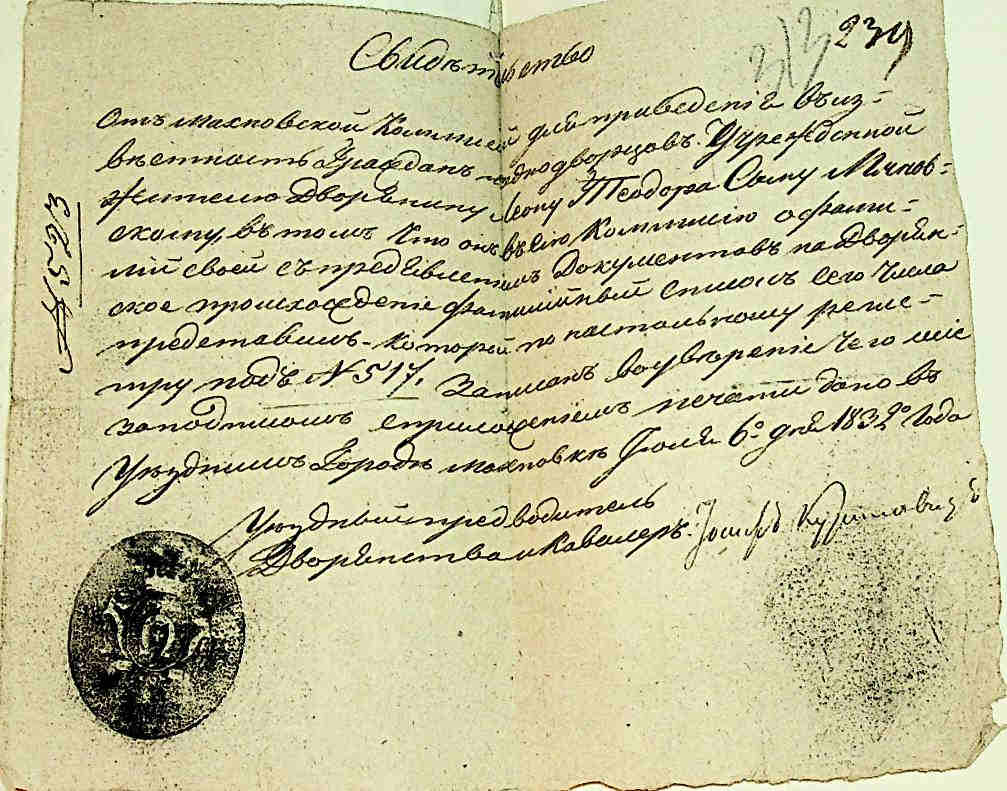 239
313
Свидѣтельство
Отъ Махновской Коммисіи для приведенія въ из-
вѣстность Граждан и однодворцовъ. Учрежденной
Жителю Дворянину Леону Теодора Сыну Мячков-
скому, въ томъ что онъ въ сію Коммисію о фами-
ліи своей съ предъявленіемъ Документовъ на Дворян-
ское происхожденіе фамилійный списокъ сего Числа
представилъ. который по настольному регис-
тру подъ N 517. Записанъ воувѣреніе Чего мліе
заподписомъ сприложеніемъ печати дано въ
Уѣздномъ Городѣ Махновкѣ Іюля 6го дня 1832го Года
Уѣздный предводитель
Дворянства и Кавалеръ. Іосифъ
N 523